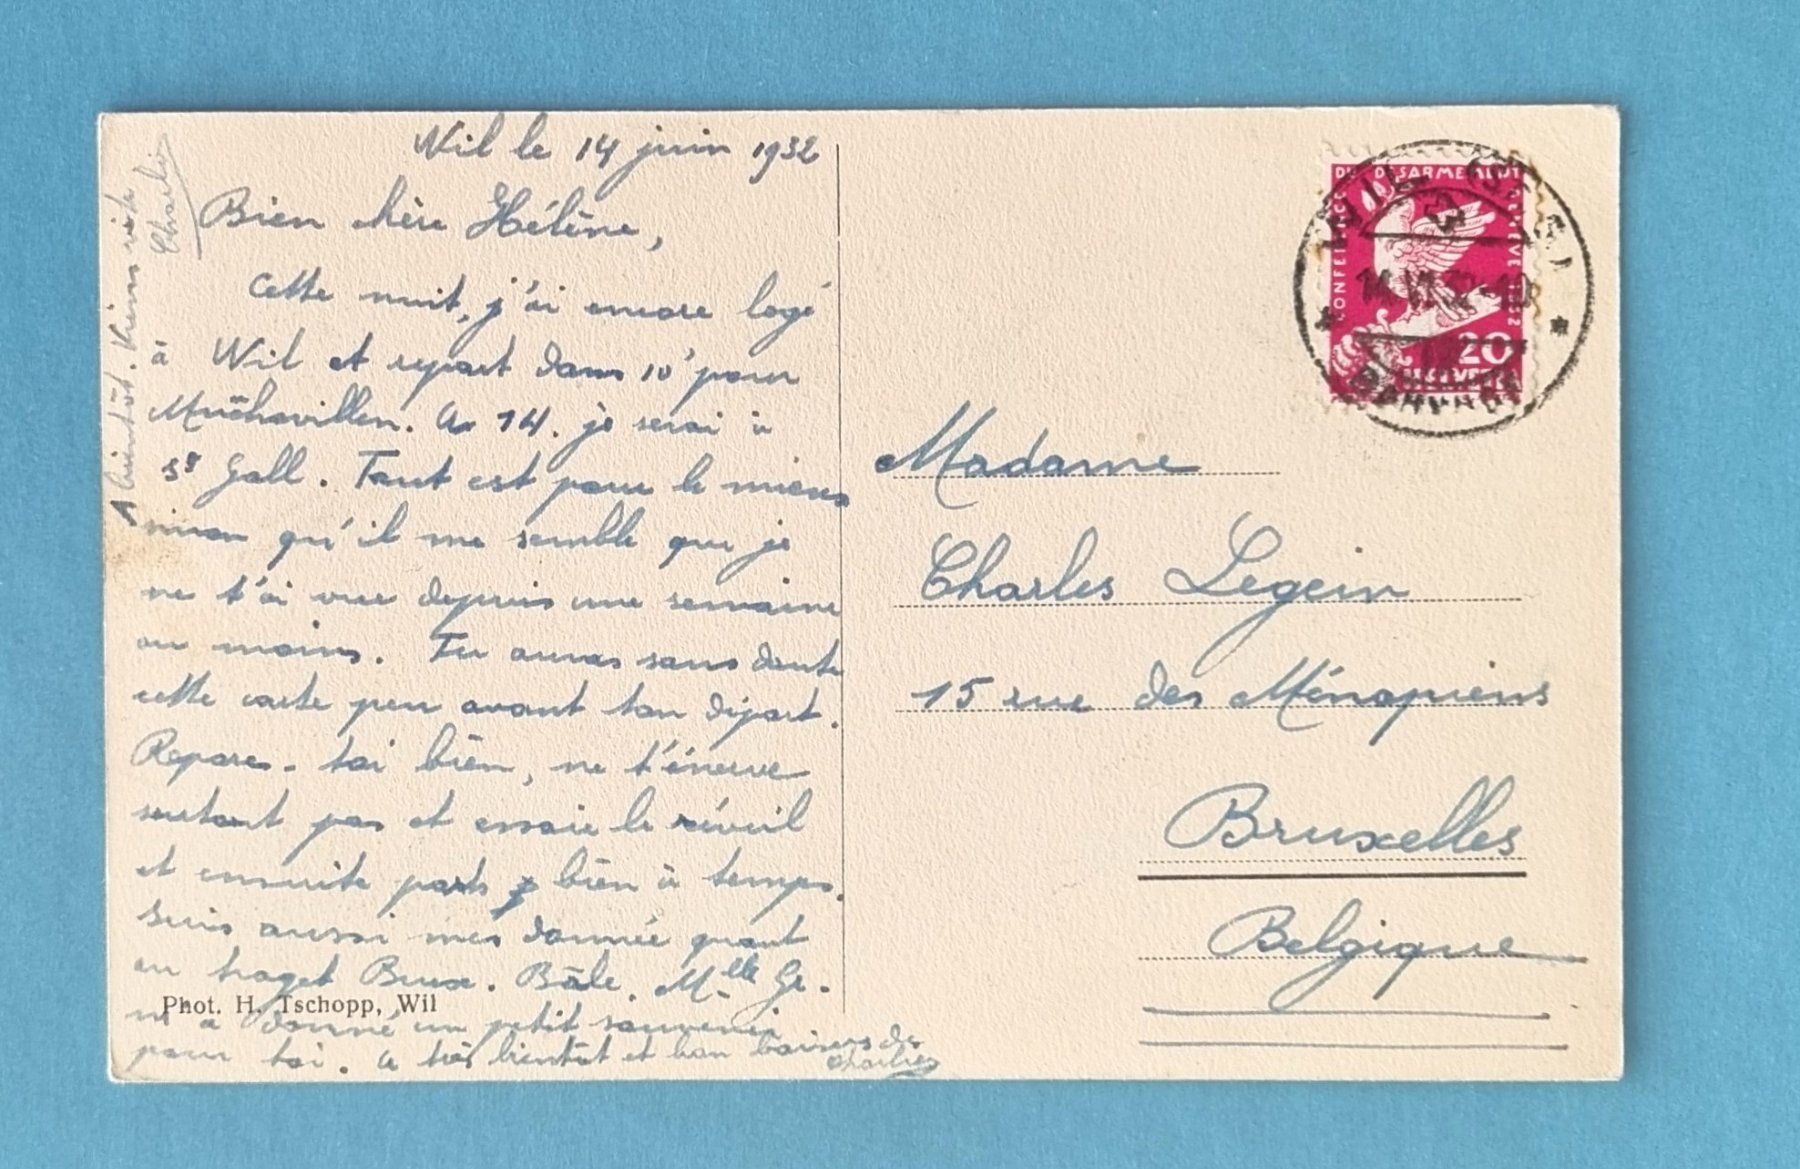 Wil le 14 juin 1932
Bien chère Hélène,
Cette nuit, j'ai encore logé
à Wil et repart dans 10' pour
Münchwillen. A 14. je serai à
St Gall. Tout est pour le mieux
sinon qu'il me semble que je
ne t'ai vue depuis une semaine
au moins. Tu auras sans doute
cette carte peu avant ton départ.
Repose-toi bien, ne t'énerve
surtout pas et essaie le réveil
et ensuite parts bien à temps.
Suis aussi mes donnée quant
au traget Brux. Bâle. Mlle Ge.
m'a donné un petit souvenir
pour toi. A très bientôt et bon baisers de
Charles
A bientôt. Viens vite
Charles
Phot. H. Tschopp, Wil
CONFERENCE DU DESARMEMENT GENEVE 1932
20
HELVETIA
WIL (ST. G.)
14.VI.32-10
BAHNHOF
Madame
Charles Legein
15 rue des Ménapiens
Bruxelles
Belgique